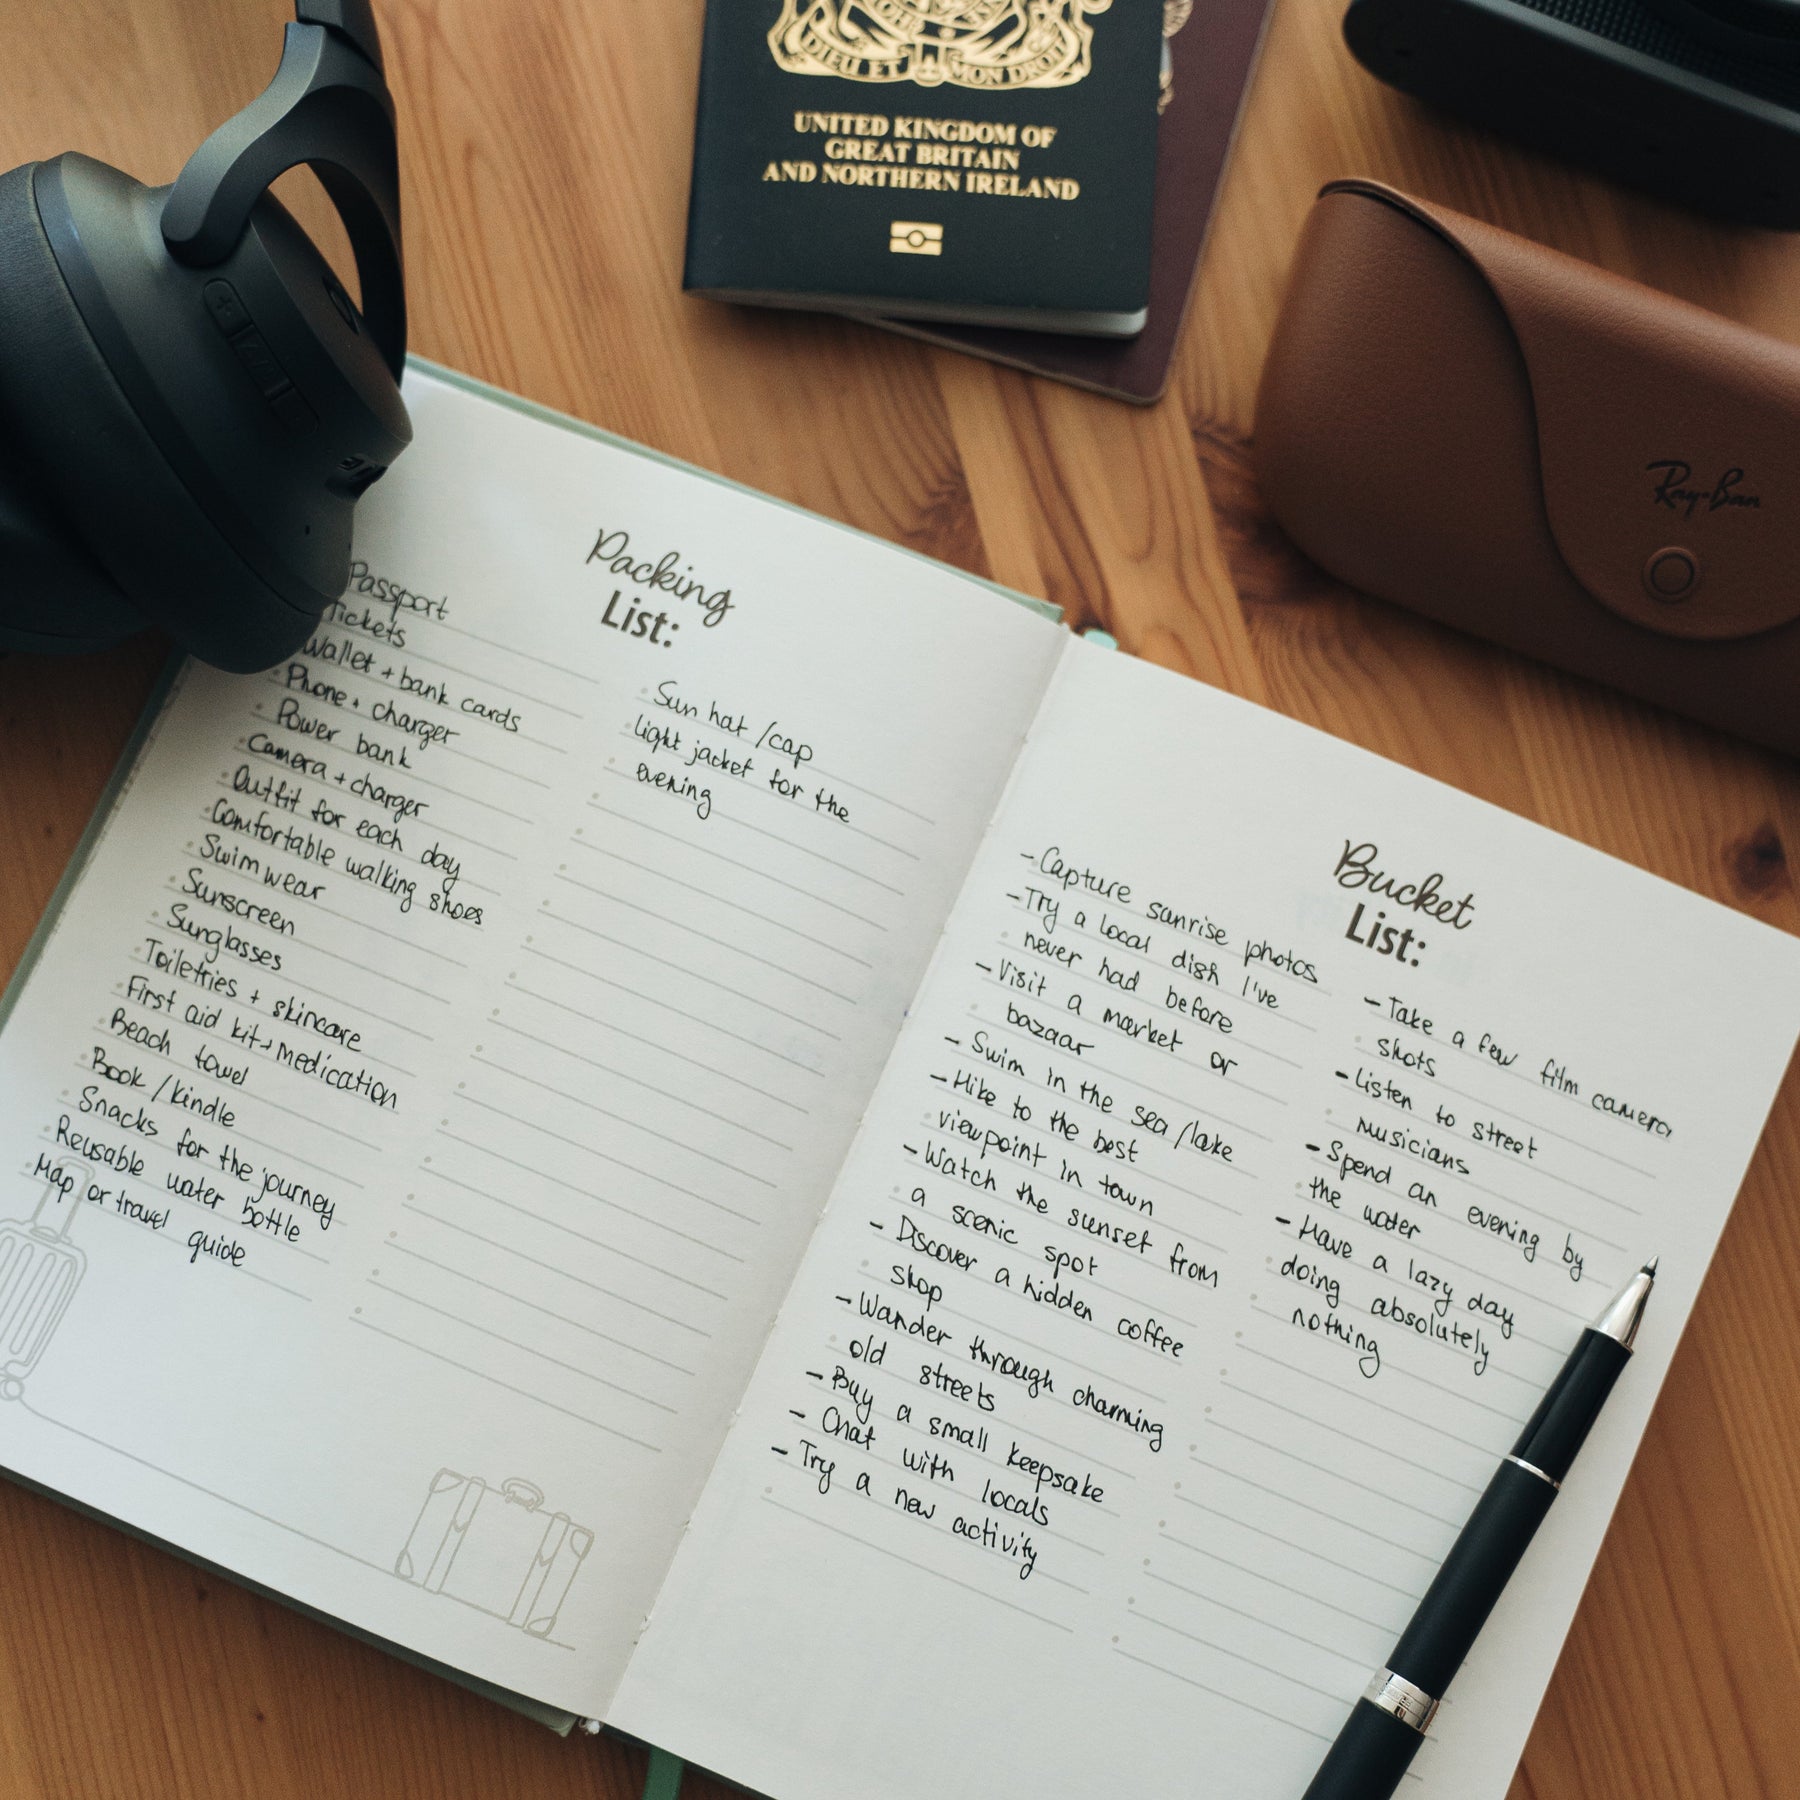 DIEU ET MON DROIT
UNITED KINGDOM OF
GREAT BRITAIN
AND NORTHERN IRELAND
Ray-Ban
Packing
List:
Passport
Tickets
Wallet + bank cards
Phone + charger
Power bank
Camera + charger
Outfit for each day
Comfortable walking shoes
Swimwear
Sunscreen
Sunglasses
Toiletries + skincare
First aid kit + medication
Beach towel
Book / kindle
Snacks for the journey
Reusable water bottle
Map or travel
guide
Sun hat / cap
light jacket for the
evening
Bucket
List:
- Capture sunrise photos
- Try a local dish I've
never had before
- Visit a market or
bazaar
- Swim in the sea / lake
- Hike to the best
viewpoint in town
- Watch the sunset from
a scenic spot
- Discover a hidden coffee
shop
- Wander through charming
old streets
- Buy a small keepsake
- Chat with locals
- Try a new activity
- Take a few film camera
shots
- Listen to street
musicians
- Spend an evening by
the water
- Have a lazy day
doing absolutely
nothing